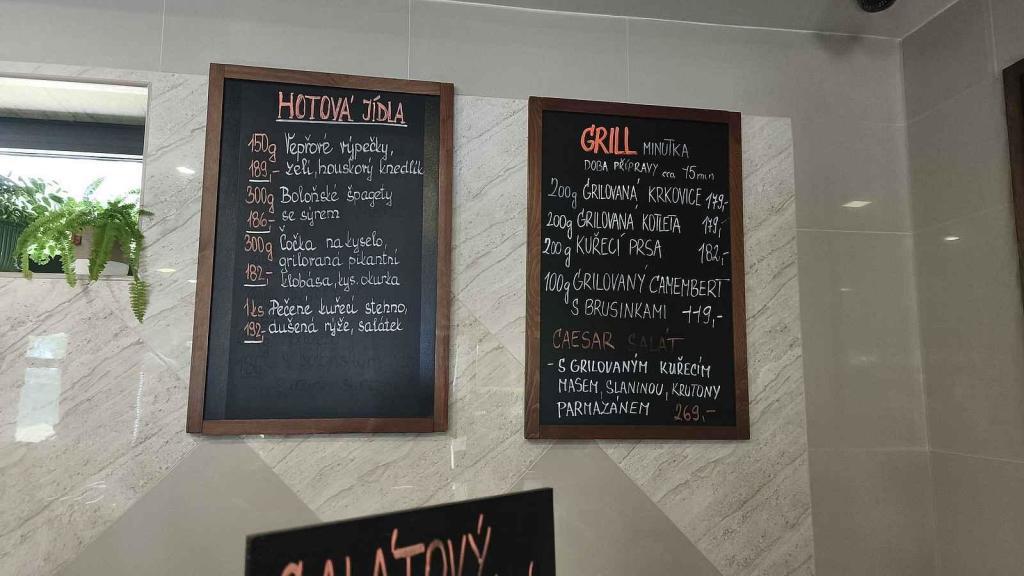 HOTOVÁ JÍDLA
150g Vepřové výpečky,
189,- zelí, houskový knedlík
300g Boloňské špagety
186,- se sýrem
300g Čočka na kyselo,
grilovaná pikantní
182,- klobása, kys. okurka
1ks Pečené kuřecí stehno,
192,- dušená rýže, salátek
GRILL MINUTKA
DOBA PŘÍPRAVY cca 15 min
200g GRILOVANÁ KRKOVICE 179,-
200g GRILOVANA KOTLETA 179,-
200g KUŘECÍ PRSA 182,-
100g GRILOVANÝ CAMEMBERT
S BRUSINKAMI 119,-
CAESAR SALÁT
- S GRILOVANÝM KUŘECÍM
MASEM, SLANINOU, KRUTONY
PARMAZÁNEM 269,-
SALÁTOVÝ